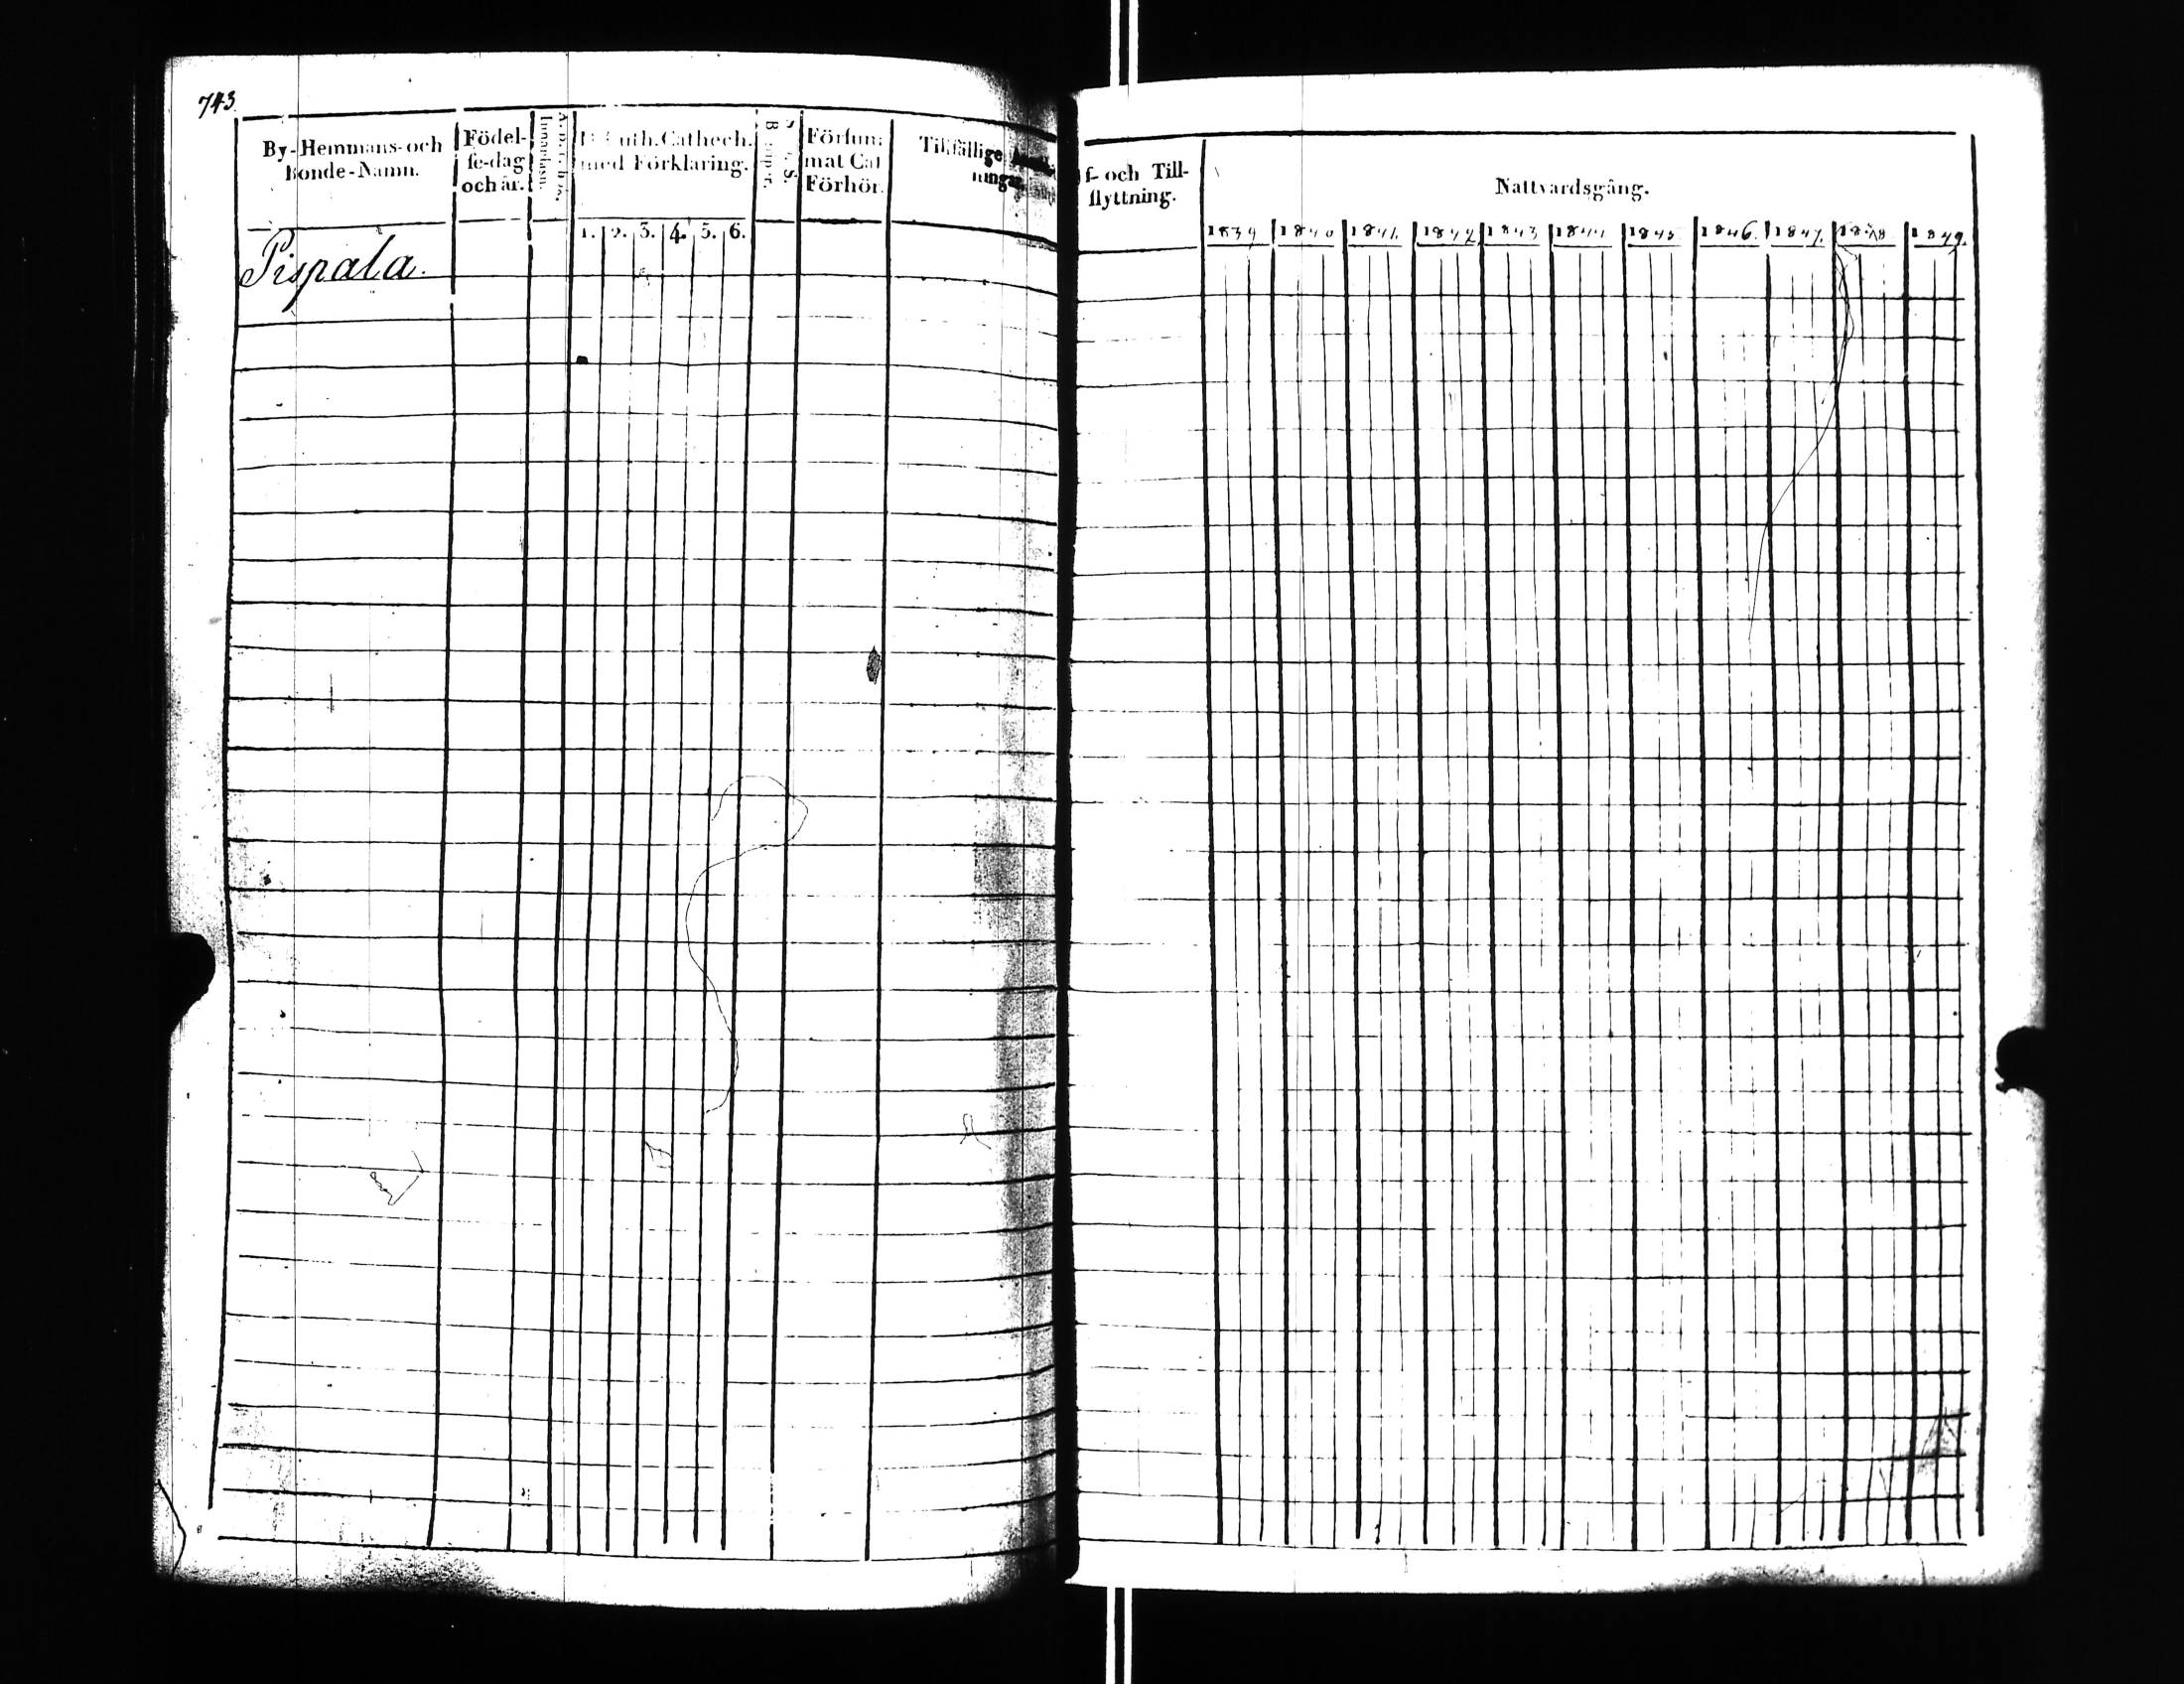 743
By-Hemmans-och
Bonde-Namn.
Födel-
se-dag
och år.
Innanläsn.
Luth. Cathech.
med Förklaring.
1. 2. 3. 4. 5. 6.
Försum-
mat Cat
Förhör.
Tillfällige
ningar.
Pispala.
f- och Till-
flyttning.
Nattvardsgång.
1839 1840 1841. 1842 1843 1844 1845 1846. 1847. 1848 1849.